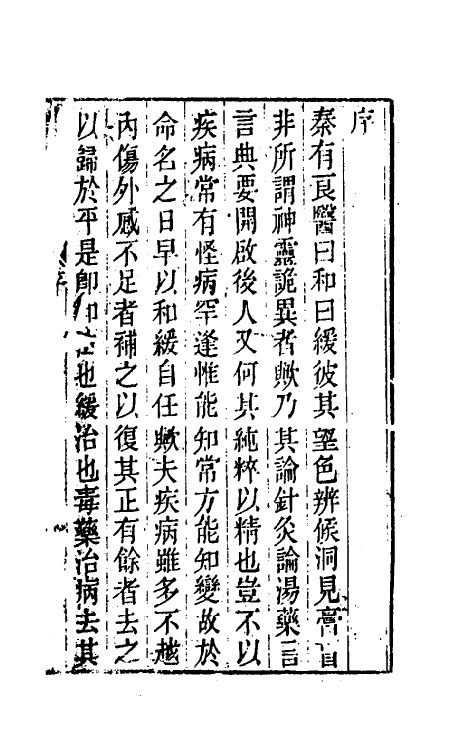 序
秦有良醫曰和曰緩彼其望色辨候洞見膏肓
非所謂神靈詭異者歟乃其論針灸論湯藥言
言典要開啟後人又何其純粹以精也豈不以
疾病常有怪病罕逢惟能知常方能知變故於
命名之日早以和緩自任歟夫疾病雖多不越
內傷外感不足者補之以復其正有餘者去之
以歸於平是卽和也緩治也毒藥治病去其